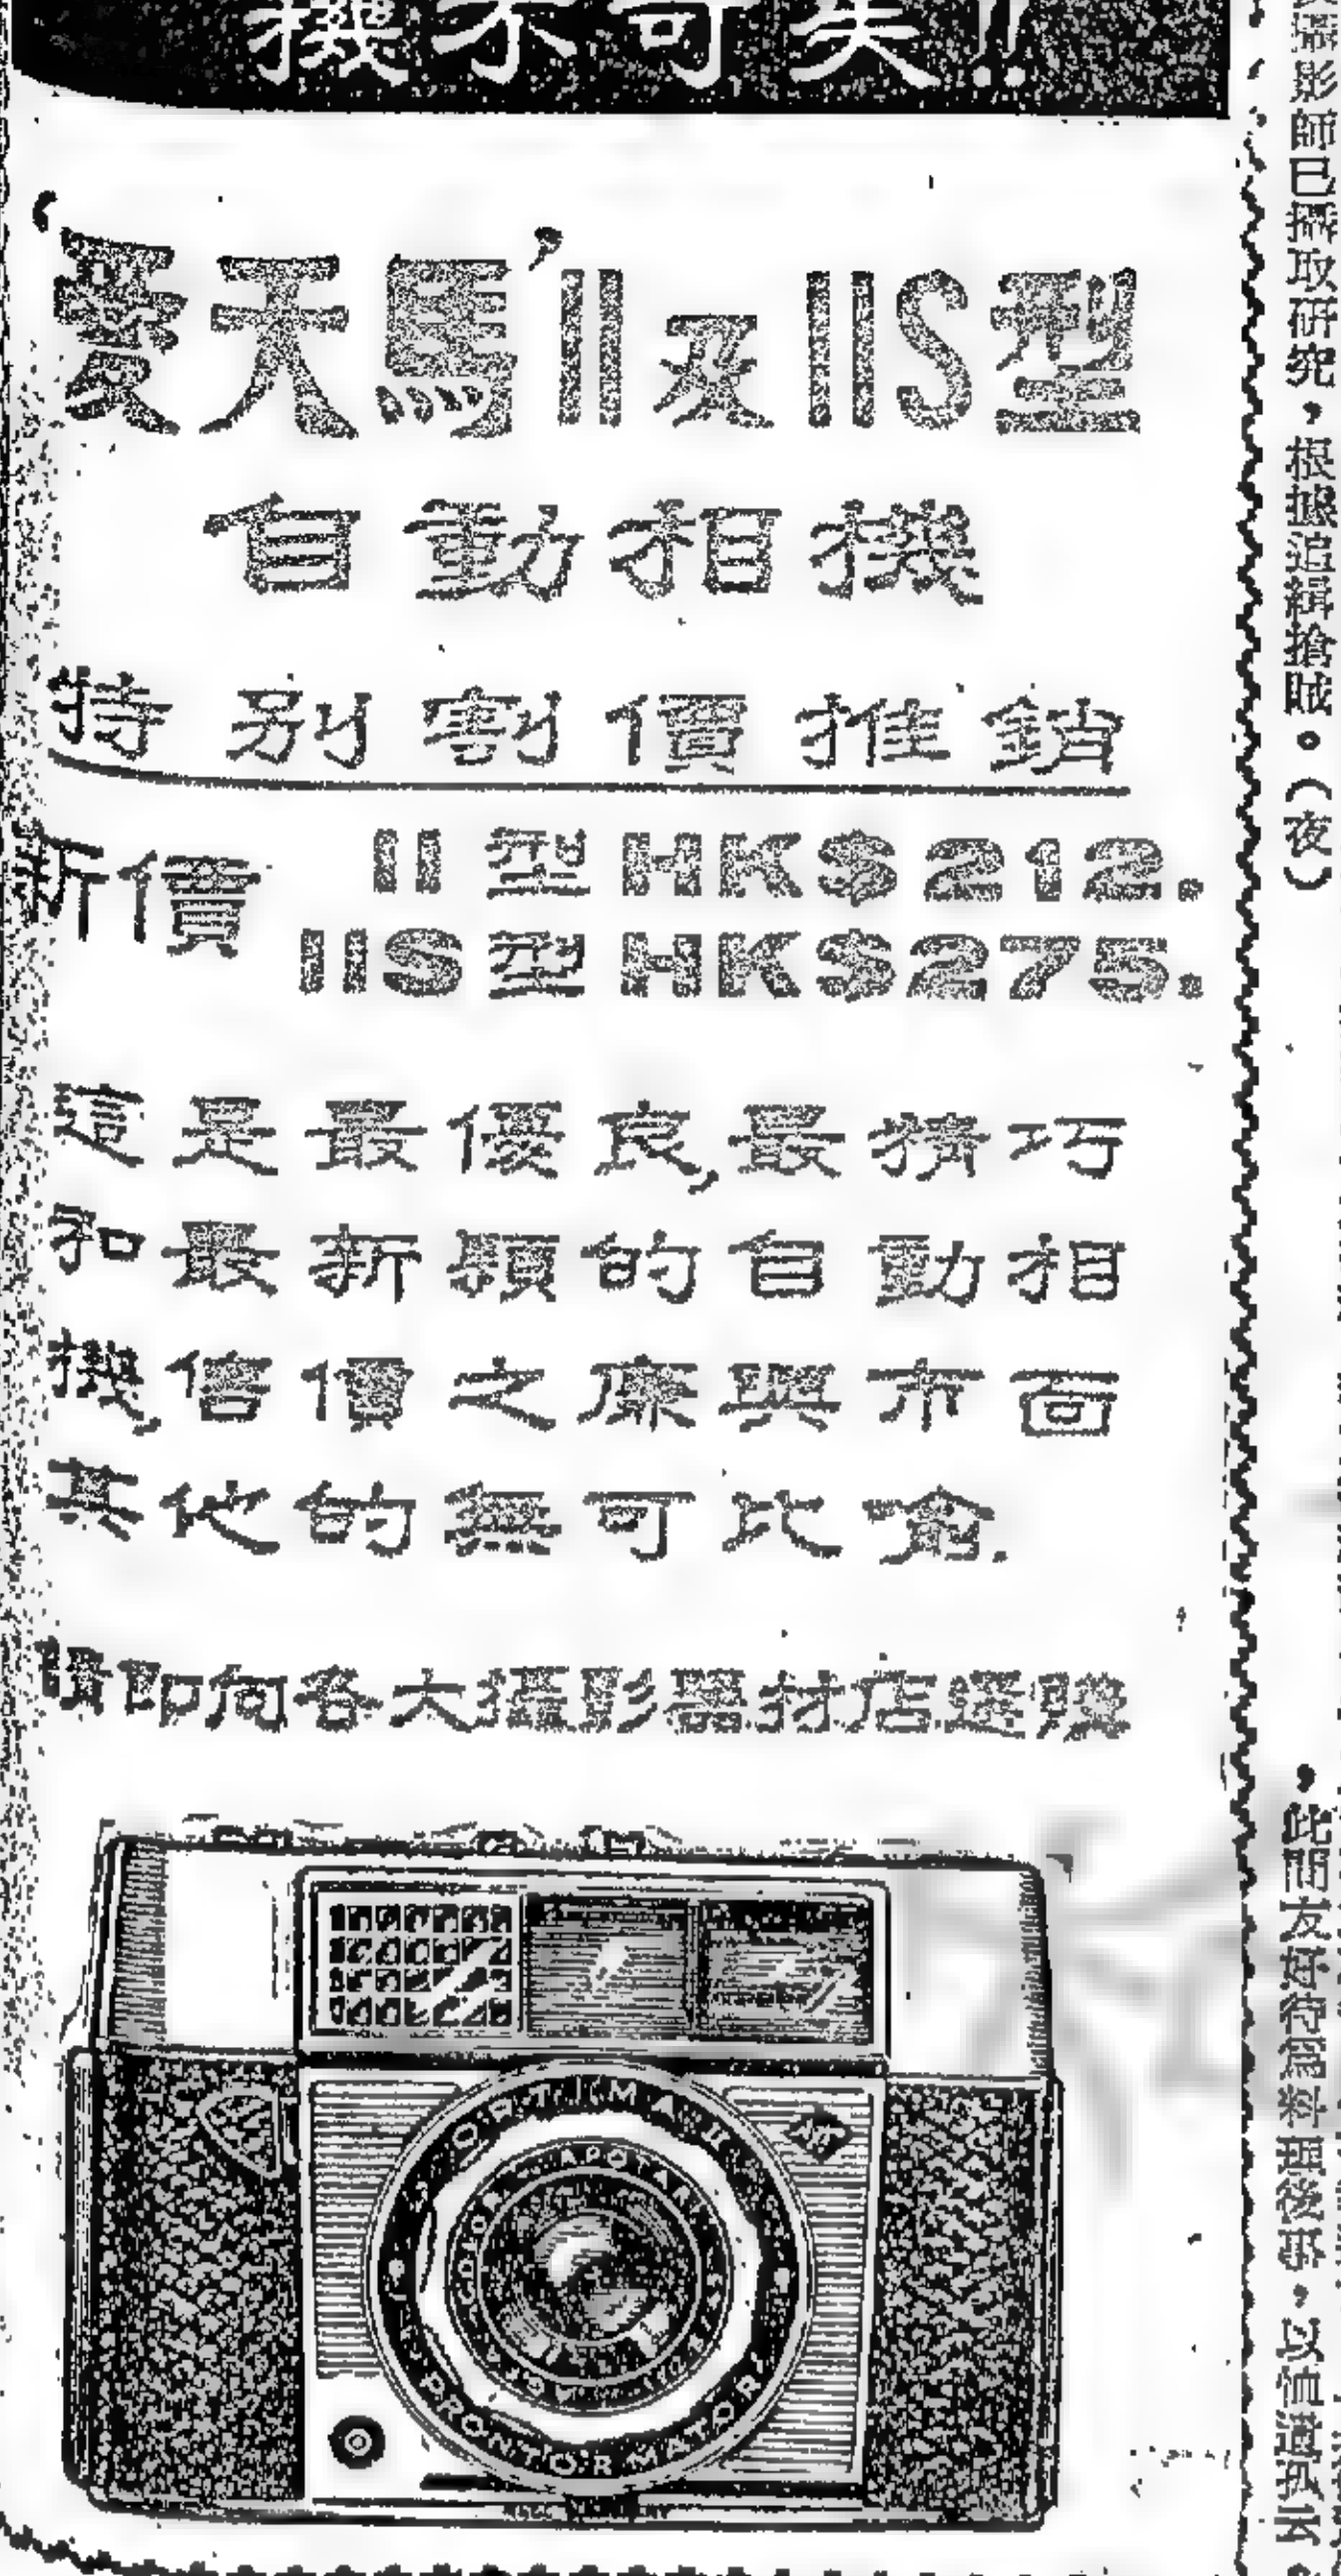 機不可失!!
‘愛天馬’II及IIS型
自動相機
特別割價推銷
新價 II型HK$212.
IIS型HK$275.
這是最優良,最精巧
和最新穎的自動相
機,售價之廉與市面
其他的無可比喻.
請即向各大攝影器材店選購
OPTIMA II
COLOR APOTAR
PRONTORMATOR
攝影師已攝取研究,根據追緝搶賊。(夜)
,此間友好